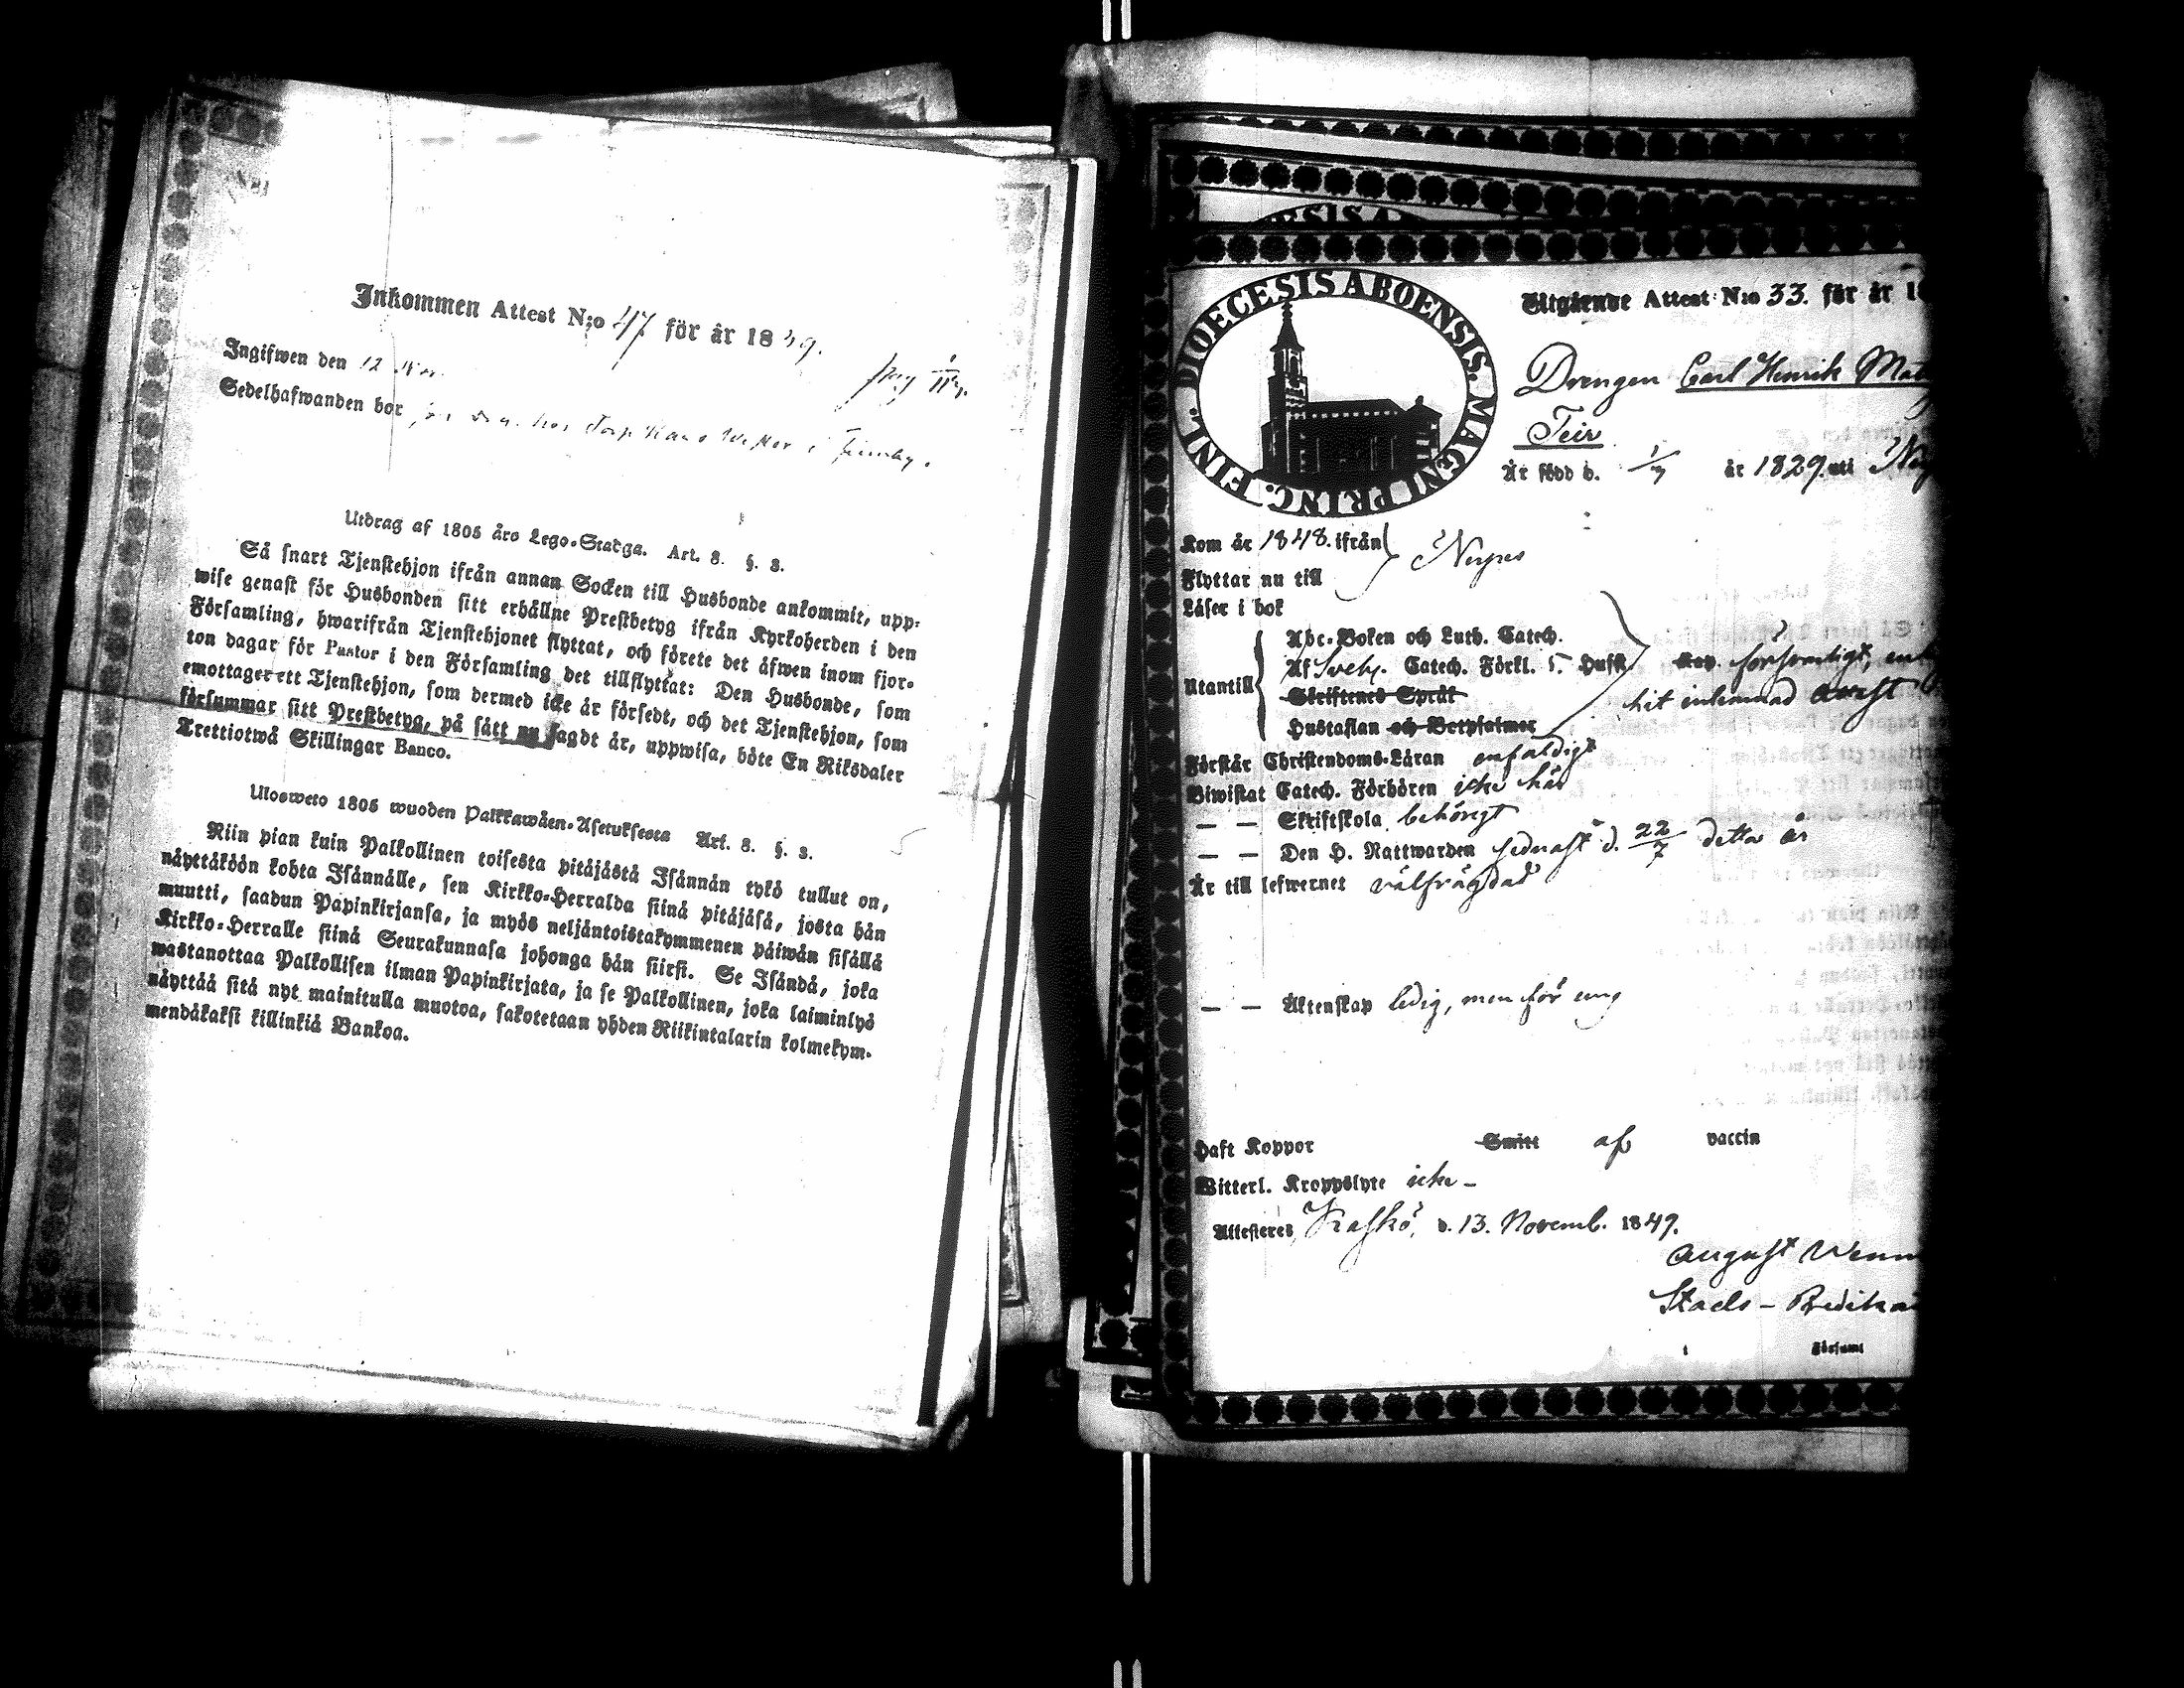 Inkommen Attest N:o 47 för år 1849.
Ingifwen den 12 Nov.
Sedelhafwanden bor
Utdrag af 1805 års Lego-Stadga. Art. 8. §. 3.
Så snart Tjenstehjon ifrån annan Socken till Husbonde ankommit, upp-
wise genast för Husbonden sitt erhållne Prestbetyg ifrån Kyrkoherden i den
Församling, hwarifrån Tjenstehjonet flyttat, och förete det äfwen inom fjor-
ton dagar för Pastor i den Församling det tillflyttat: Den Husbonde, som
emottager ett Tjenstehjon, som dermed icke är försedt, och det Tjenstehjon, som
försummar sitt Prestbetyg, på sätt nu sagdt är, uppwisa, böte En Riksdaler
Trettiotwå Skillingar Banco.
Ulosweto 1805 wuoden Palkkawäen-Asetuksesta Art. 8. §. 3.
Niin pian kuin Palkollinen toisesta pitäjästä Isännän tykö tullut on,
näyttäköön kohta Isännälle, sen Kirkko-Herralda siinä pitäjäsä, josta hän
muutti, saadun Papinkirjansa, ja myös neljäntoistakymmenen päiwän sisällä
Kirkko-Herralle siinä Seurakunnasa johonga hän siirsi. Se Isändä, joka
wastanottaa Palkollisen ilman Papinkirjata, ja se Palkollinen, joka laiminlyö
näyttää sitä nyt mainitulla muotoa, sakotetaan yhden Riikintalarin kolmekym-
mendäkaksi killinkiä Bankoa.
DIOECESIS ABOENSIS. MAGNI PRINC. FINL.
Utgående Attest N:o 33. för år 1
Drengen Carl Henrik Mat
Teir
Är född d. 1/7 år 1829. uti
Kom år 1848. ifrån } Nerpes
Flyttar nu till
Läser i bok
Abc-Boken och Luth. Catech.
Utantill Af Sveb. Catech. Förkl. 5. Hufst. försvarligt,
Skriftenes Språk hit inkommad
Hustaflan och Botpsalmer
Förstår Christendoms-Läran enfaldigt
Biwistat Catech. Förhören icke här
— — Skriftskola behörigt
— — Den H. Nattwarden sednast d. 22/7 detta år
Är till lefwernet välfrägdad
— — Äktenskap ledig, men för ung
Haft Koppor Smitt af vaccin
Witterl. Kroppslyte icke -
Attesteres Kaskö, d. 13. Novemb. 1849.
August Wenn
Stads - Predika
Församl